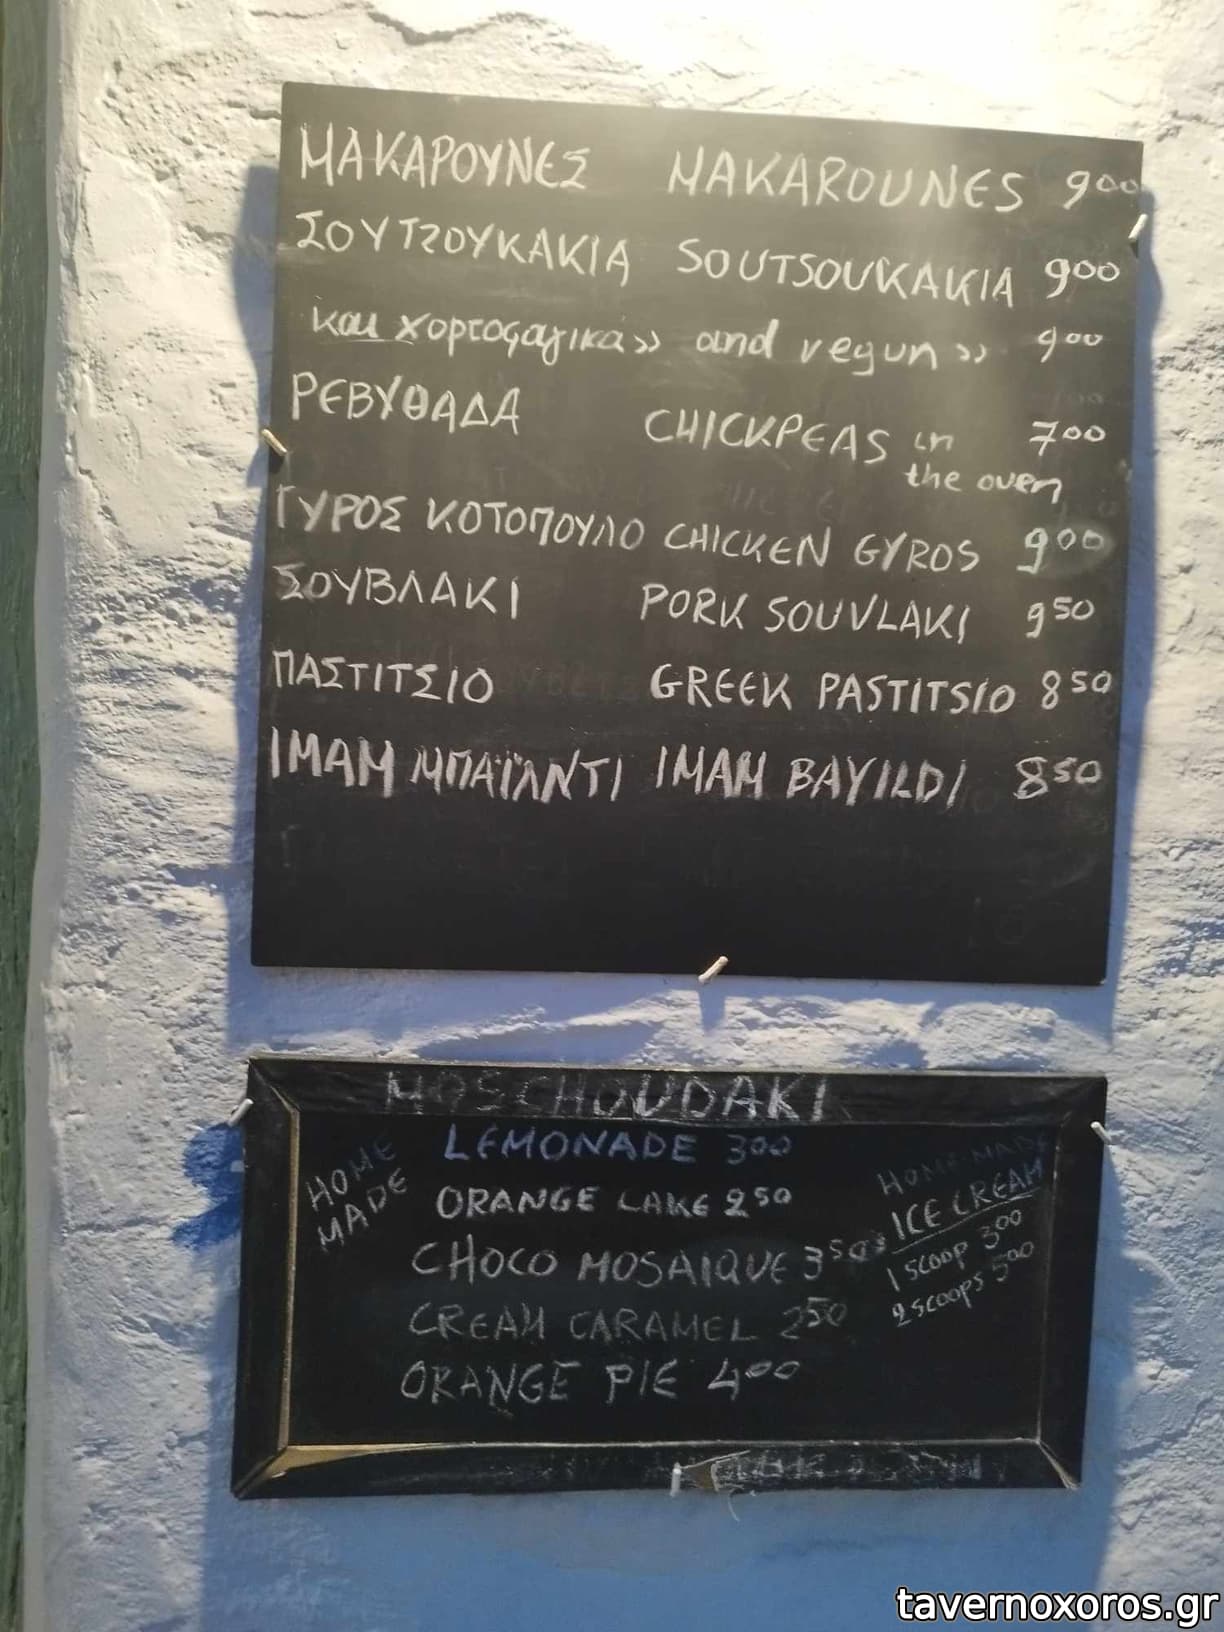 ΜΑΚΑΡΟΥΝΕΣ MAKAROUNES 900
ΣΟΥΤΖΟΥΚΑΚΙΑ SOUTSOUKAKIA 900
και χορτοφαγικα» and vegun» 900
ΡΕΒΥΘΑΔΑ CHICKPEAS in 700
the oven
ΓΥΡΟΣ ΚΟΤΟΠΟΥΛΟ CHICKEN GYROS 900
ΣΟΥΒΛΑΚΙ PORK SOUVLAKI 950
ΠΑΣΤΙΤΣΙΟ GREEK PASTITSIO 850
ΙΜΑΜ ΜΠΑΪΛΝΤΙ IMAM BAYILDI 850
MOSCHOUDAKI
HOME MADE
LEMONADE 300
ORANGE CAKE 250
CHOCO MOSAIQUE 350
CREAM CARAMEL 250
ORANGE PIE 400
HOME-MADE
ICE CREAM
1 SCOOP 300
2 SCOOPS 500
tavernoxoros.gr